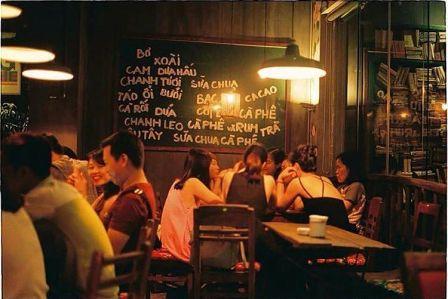 BƠ XOÀI
CAM DƯA HẤU
CHANH TƯƠI SỮA CHUA
TÁO ỔI BƯỞI BẠC CACAO
CÀ RỐT DỨA CÀ PHÊ
CHANH LEO CÀ PHÊ RUM TRÀ
DÂU TÂY SỮA CHUA CÀ PHÊ